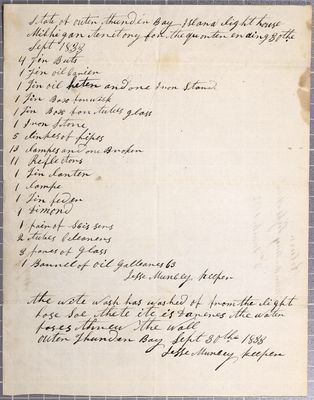 State of outer thunder Bay Island light house
Michigan teritony for the qurnten ending 30the
Sept 1838
4 Tin Buts
1 Tin oil caneen
1 Tin oil heten and one Iron Stand
1 Tin Boxe for wick
1 Tin Boxe for tubes glass
1 Iron Stove
5 linkes of pipes
13 lampes and one Broken
11 Reflectors
1 Tin lanten
1 lampe
1 Tin feder
1 Dimond
1 pair of Sissens
2 tubes Cleaners
8 panes of glass
1 Barrel of oil Galleanes 63
Jesse Munbey keeper
the wite wash has washed of from the light
hose Soe thete ite is the water
forces threw the wall
outer Thunder Bay Sept 30the 1838
Jesse Munbey keeper